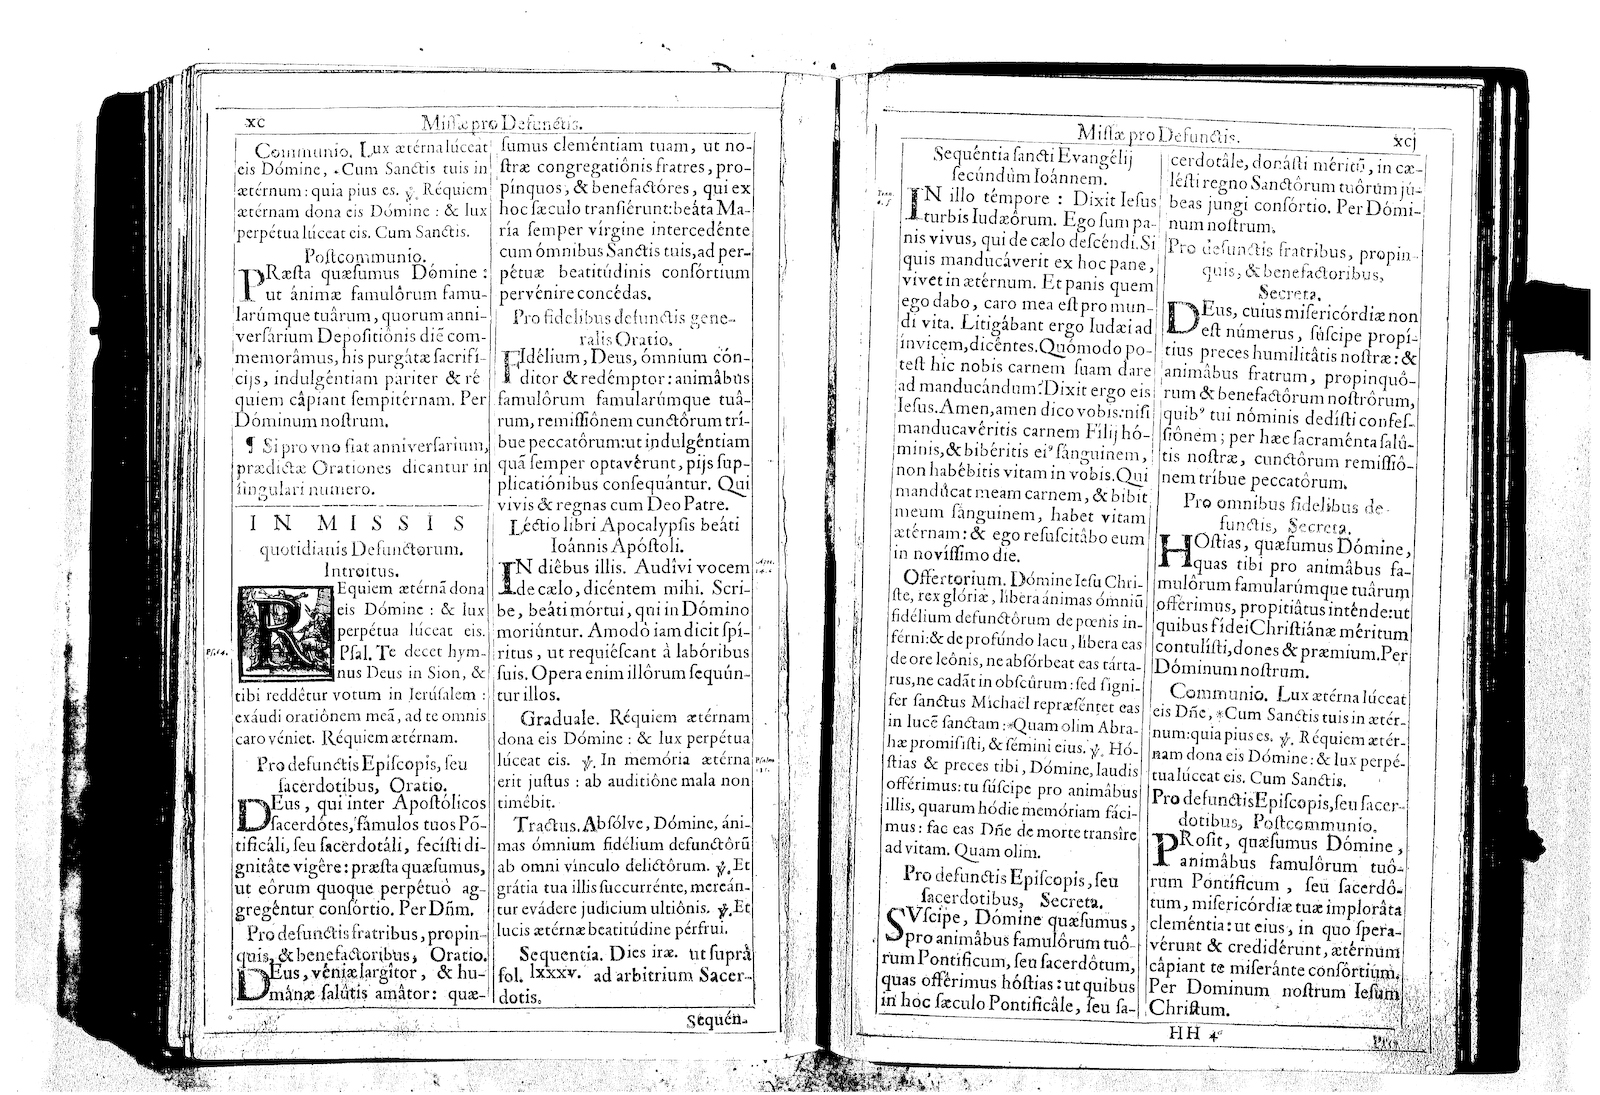 xc
Missæ pro Defunctis.
Communio. Lux ætérna lúceat
eis Dómine, * Cum Sanctis tuis in
ætérnum: quia pius es. ℣. Réquiem
ætérnam dona eis Dómine: & lux
perpétua lúceat eis. Cum Sanctis.
Postcommunio.
PRæsta quæsumus Dómine:
ut ánimæ famulôrum famu-
larúmque tuârum, quorum anni-
versárium Depositiônis diē com-
memorâmus, his purgátæ sacrifí-
cijs, indulgéntiam páriter & ré
quiem câpiant sempitérnam. Per
Dóminum nostrum.
¶ Si pro vno fiat anniversarium,
prædictæ Orationes dicantur in
singulari numero.
IN MISSIS
quotidianis Defunctorum.
Introitus.
REquiem ætérnā dona
eis Dómine: & lux
perpétua lúceat eis.
Psal. Te decet hym-
nus Deus in Sion, &
Psl 64.
tibi reddétur votum in Ierúsalem:
exáudi oratiónem meā, ad te omnis
caro véniet. Réquiem ætérnam.
Pro defunctis Episcopis, seu
sacerdotibus, Oratio.
DEus, qui inter Apostólicos
sacerdótes, fámulos tuos Pō-
tificáli, seu sacerdotáli, fecísti di-
gnitáte vigêre: præsta quæsumus,
ut eórum quoque perpétuò ag-
gregéntur consórtio. Per Dn̄m.
Pro defunctis fratribus, propin-
quis, & benefactoribus, Oratio.
DEus, véniæ largítor, & hu-
mánæ salútis amâtor: quæ-
sumus cleméntiam tuam, ut no-
stræ congregatiônis fratres, pro-
pínquos, & benefactóres, qui ex
hoc sæculo transiérunt: beáta Ma-
ría semper vírgine intercedénte
cum ómnibus Sanctis tuis, ad per-
pétuæ beatitúdinis consórtium
pervénire concédas.
Pro fidelibus defunctis gene-
ralis Oratio.
FIdélium, Deus, ómnium cón-
ditor & redémptor: animâbus
famulôrum famularúmque tuâ-
rum, remissiônem cunctôrum trí-
bue peccatôrum: ut indulgéntiam
quā semper optavérunt, pijs sup-
plicatiónibus consequántur. Qui
vivis & regnas cum Deo Patre.
Léctio libri Apocalypsis beáti
Ioánnis Apóstoli.
IN diêbus illis. Audívi vocem
de cælo, dicéntem mihi. Scri-
be, beáti mórtui, qui in Dómino
moriúntur. Amodò iam dicit spí-
ritus, ut requiéscant à labóribus
suis. Opera enim illôrum sequún-
tur illos.
Graduale. Réquiem ætérnam
dona eis Dómine: & lux perpétua
lúceat eis. ℣. In memória ætérna
erit justus: ab auditiône mala non
timébit.
Tractus. Absólve, Dómine, áni-
mas ómnium fidélium defunctôrū
ab omni vínculo delictórum. ℣. Et
grátia tua illis succurrénte, mereán-
tur evádere judícium ultiônis. ℣. Et
lucis ætérnæ beatitúdine pérfrui.
Sequentia. Dies iræ. ut suprà
fol. lxxxv. ad arbitrium Sacer-
dotis.
Sequén-
Missæ pro Defunctis.
xcj
Sequéntia sancti Evangélij
secúndùm Ioánnem.
IN illo témpore: Dixit Iesus
turbis Iudæôrum. Ego sum pa-
nis vivus, qui de cælo descéndi. Si
quis manducáverit ex hoc pane,
vivet in ætérnum. Et panis quem
ego dabo, caro mea est pro mun-
di vita. Litigâbant ergo Iudæi ad
ínvicem, dicéntes. Quómodo po-
test hic nobis carnem suam dare
ad manducándum? Dixit ergo eis
Iesus. Amen, amen dico vobis: nisi
manducavéritis carnem Filij hó-
minis, & bibéritis eiꝰ sánguinem,
non habébitis vitam in vobis. Qui
mandúcat meam carnem, & bibit
meum sánguinem, habet vitam
ætérnam: & ego resuscitâbo eum
in novíssimo die.
Offertorium. Dómine Iesu Chri-
ste, rex glóriæ, libera ánimas ómniū
fidélium defunctórum de pœnis in-
férni: & de profúndo lacu, libera eas
de ore leônis, ne absórbeat eas tárta-
rus, ne cadāt in obscûrum: sed sígni-
fer sanctus Michaël repræséntet eas
in lucē sanctam: *Quam olim Abra-
hæ promisísti, & sémini eius. ℣. Hó-
stias & preces tibi, Dómine, laudis
offérimus: tu súscipe pro animâbus
illis, quarum hódie memóriam fáci-
mus: fac eas Dn̄e de morte transíre
ad vitam. Quam olim.
Pro defunctis Episcopis, seu
sacerdotibus, Secreta.
SVscipe, Dómine quæsumus,
pro animâbus famulôrum tuô-
rum Pontíficum, seu sacerdôtum,
quas offérimus hóstias: ut quibus
in hoc sæculo Pontificâle, seu sa-
cerdotâle, donásti méritū, in cæ-
lésti regno Sanctôrum tuôrum jú-
beas jungi consórtio. Per Dómi-
num nostrum.
Pro defunctis fratribus, propin-
quis, & benefactoribus,
Secreta.
DEus, cuius misericórdiæ non
est númerus, súscipe propí-
tius preces humilitâtis nostræ: &
animâbus fratrum, propinquô-
rum & benefactôrum nostrôrum,
quibꝰ tui nóminis dedísti confes-
siônem; per hæc sacraménta salû-
tis nostræ, cunctôrum remissiô-
nem tríbue peccatôrum.
Pro omnibus fidelibus de-
functis, Secreta.
HOstias, quæsumus Dómine,
quas tibi pro animâbus fa-
mulôrum famularúmque tuârum
offérimus, propitiâtus inténde: ut
quibus fídei Christiánæ méritum
contulísti, dones & præmium. Per
Dóminum nostrum.
Communio. Lux ætérna lúceat
eis Dn̄e, *Cum Sanctis tuis in ætér-
num: quia pius es. ℣. Réquiem ætér-
nam dona eis Dómine: & lux perpé-
tua lúceat eis. Cum Sanctis.
Pro defunctis Episcopis, seu sacer-
dotibus, Postcommunio.
PRosit, quæsumus Dómine,
animâbus famulôrum tuô-
rum Pontíficum, seu sacerdô-
tum, misericórdiæ tuæ implorâta
cleméntia: ut eius, in quo spera-
vérunt & credidérunt, ætérnum
câpiant te miserânte consórtium.
Per Dominum nostrum Iesum
Christum.
HH 4
Pro